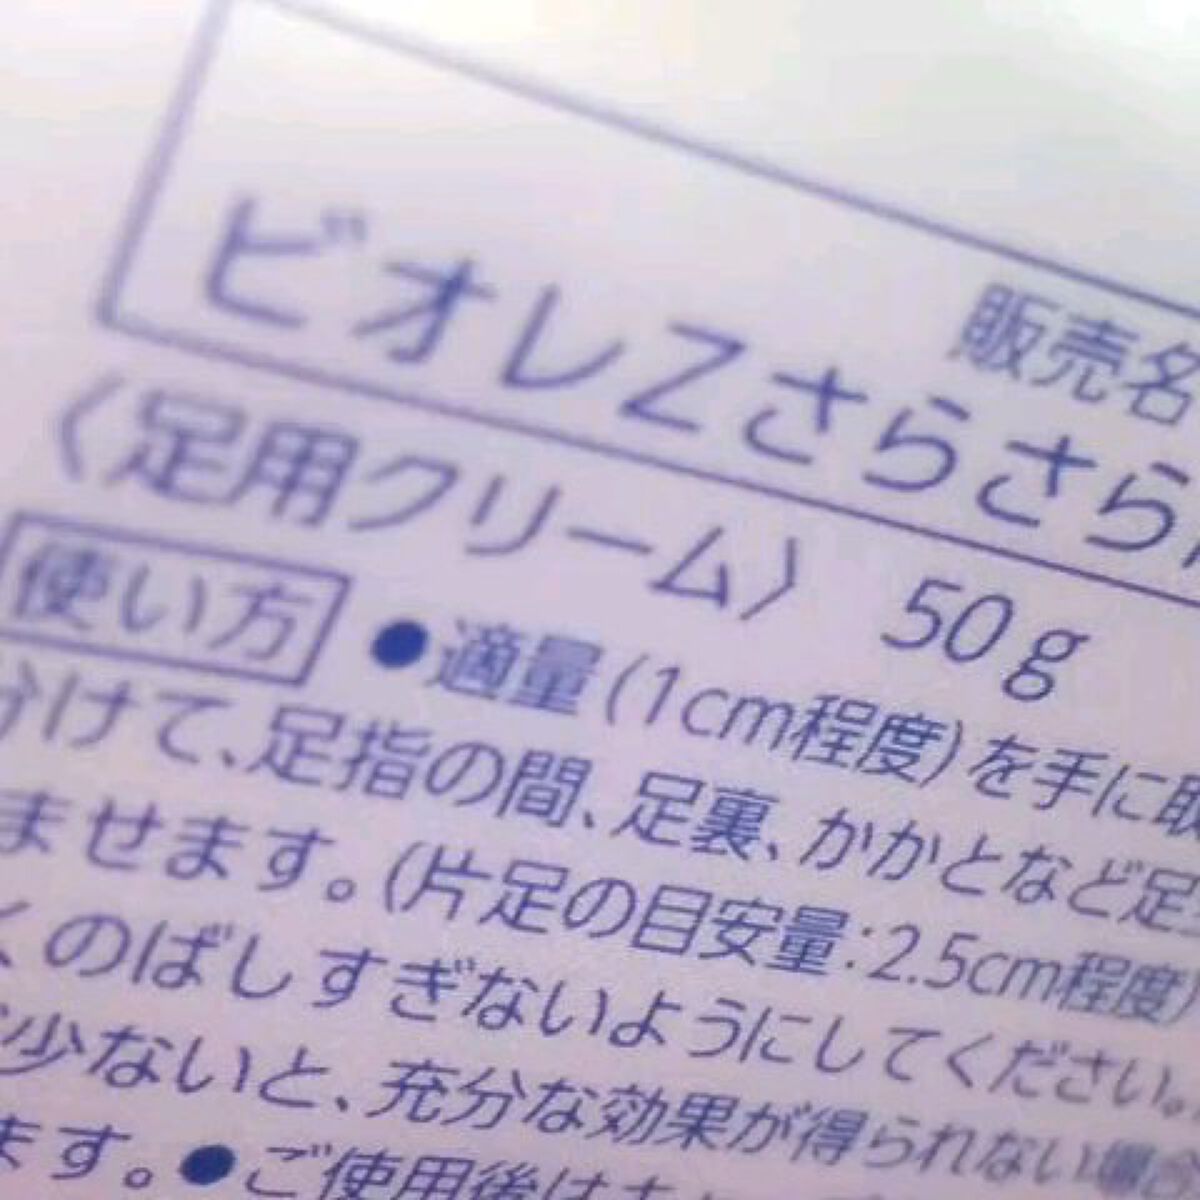 販売名
ビオレZさらさら
〈足用クリーム〉 50g
使い方 ●適量(1cm程度)を手に取
分けて、足指の間、足裏、かかとなど足
ませます。(片足の目安量:2.5cm程度)
くのばしすぎないようにしてください。
少ないと、充分な効果が得られない場合
ます。●ご使用後は